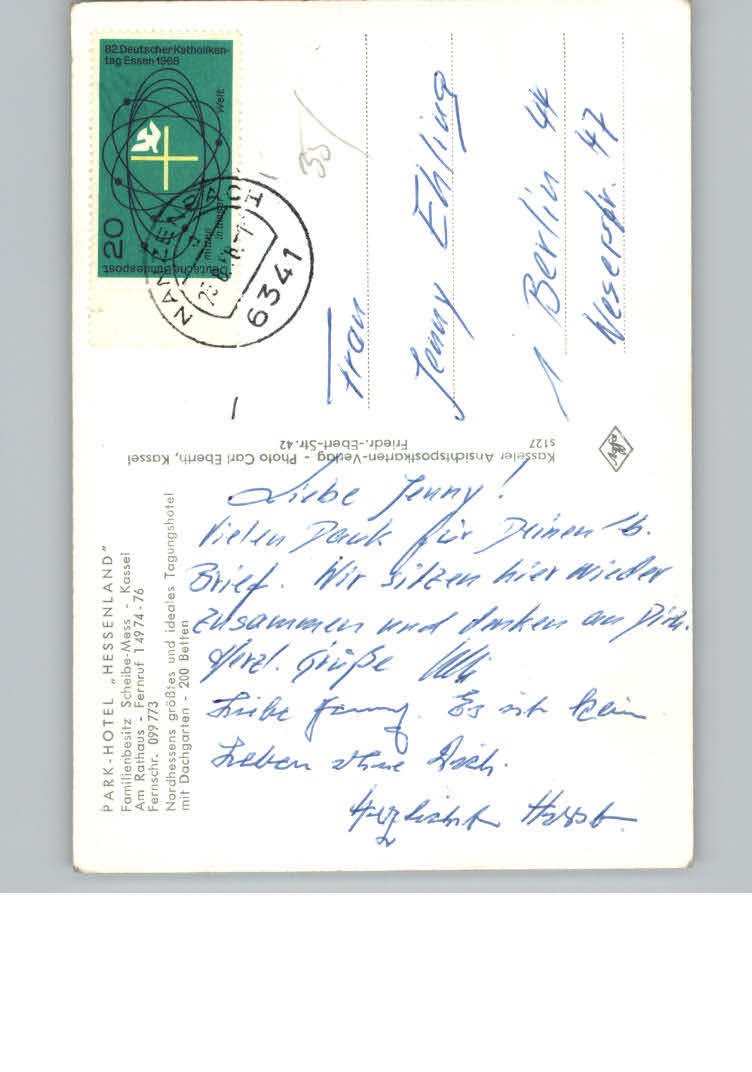 PARK-HOTEL „HESSENLAND"
Familienbesitz Scheibe-Mess - Kassel
Am Rathaus - Fernruf 1 49 74 - 76
Fernschr. 099 773
Nordhessens größtes und ideales Tagungshotel
mit Dachgarten - 200 Betten
Liebe Jenny!
Vielen Dank für Deinen lb.
Brief. Wir sitzen hier wieder
zusammen und denken an Dich.
Herzl. Grüße
Liebe Jenny. Es ist kein
Leben ohne Dich.
Herzlichst Horst
Kasseler Ansichtspostkarten-Verlag - Photo Carl Eberth, Kassel
Friedr.-Ebert-Str. 42
5127
82. Deutscher Katholiken-
tag Essen 1968
mitten
in dieser
Welt
20
Deutsche Bundespost
6341
35
Frau
Jenny Ehling
1 Berlin 44
Weserstr. 47